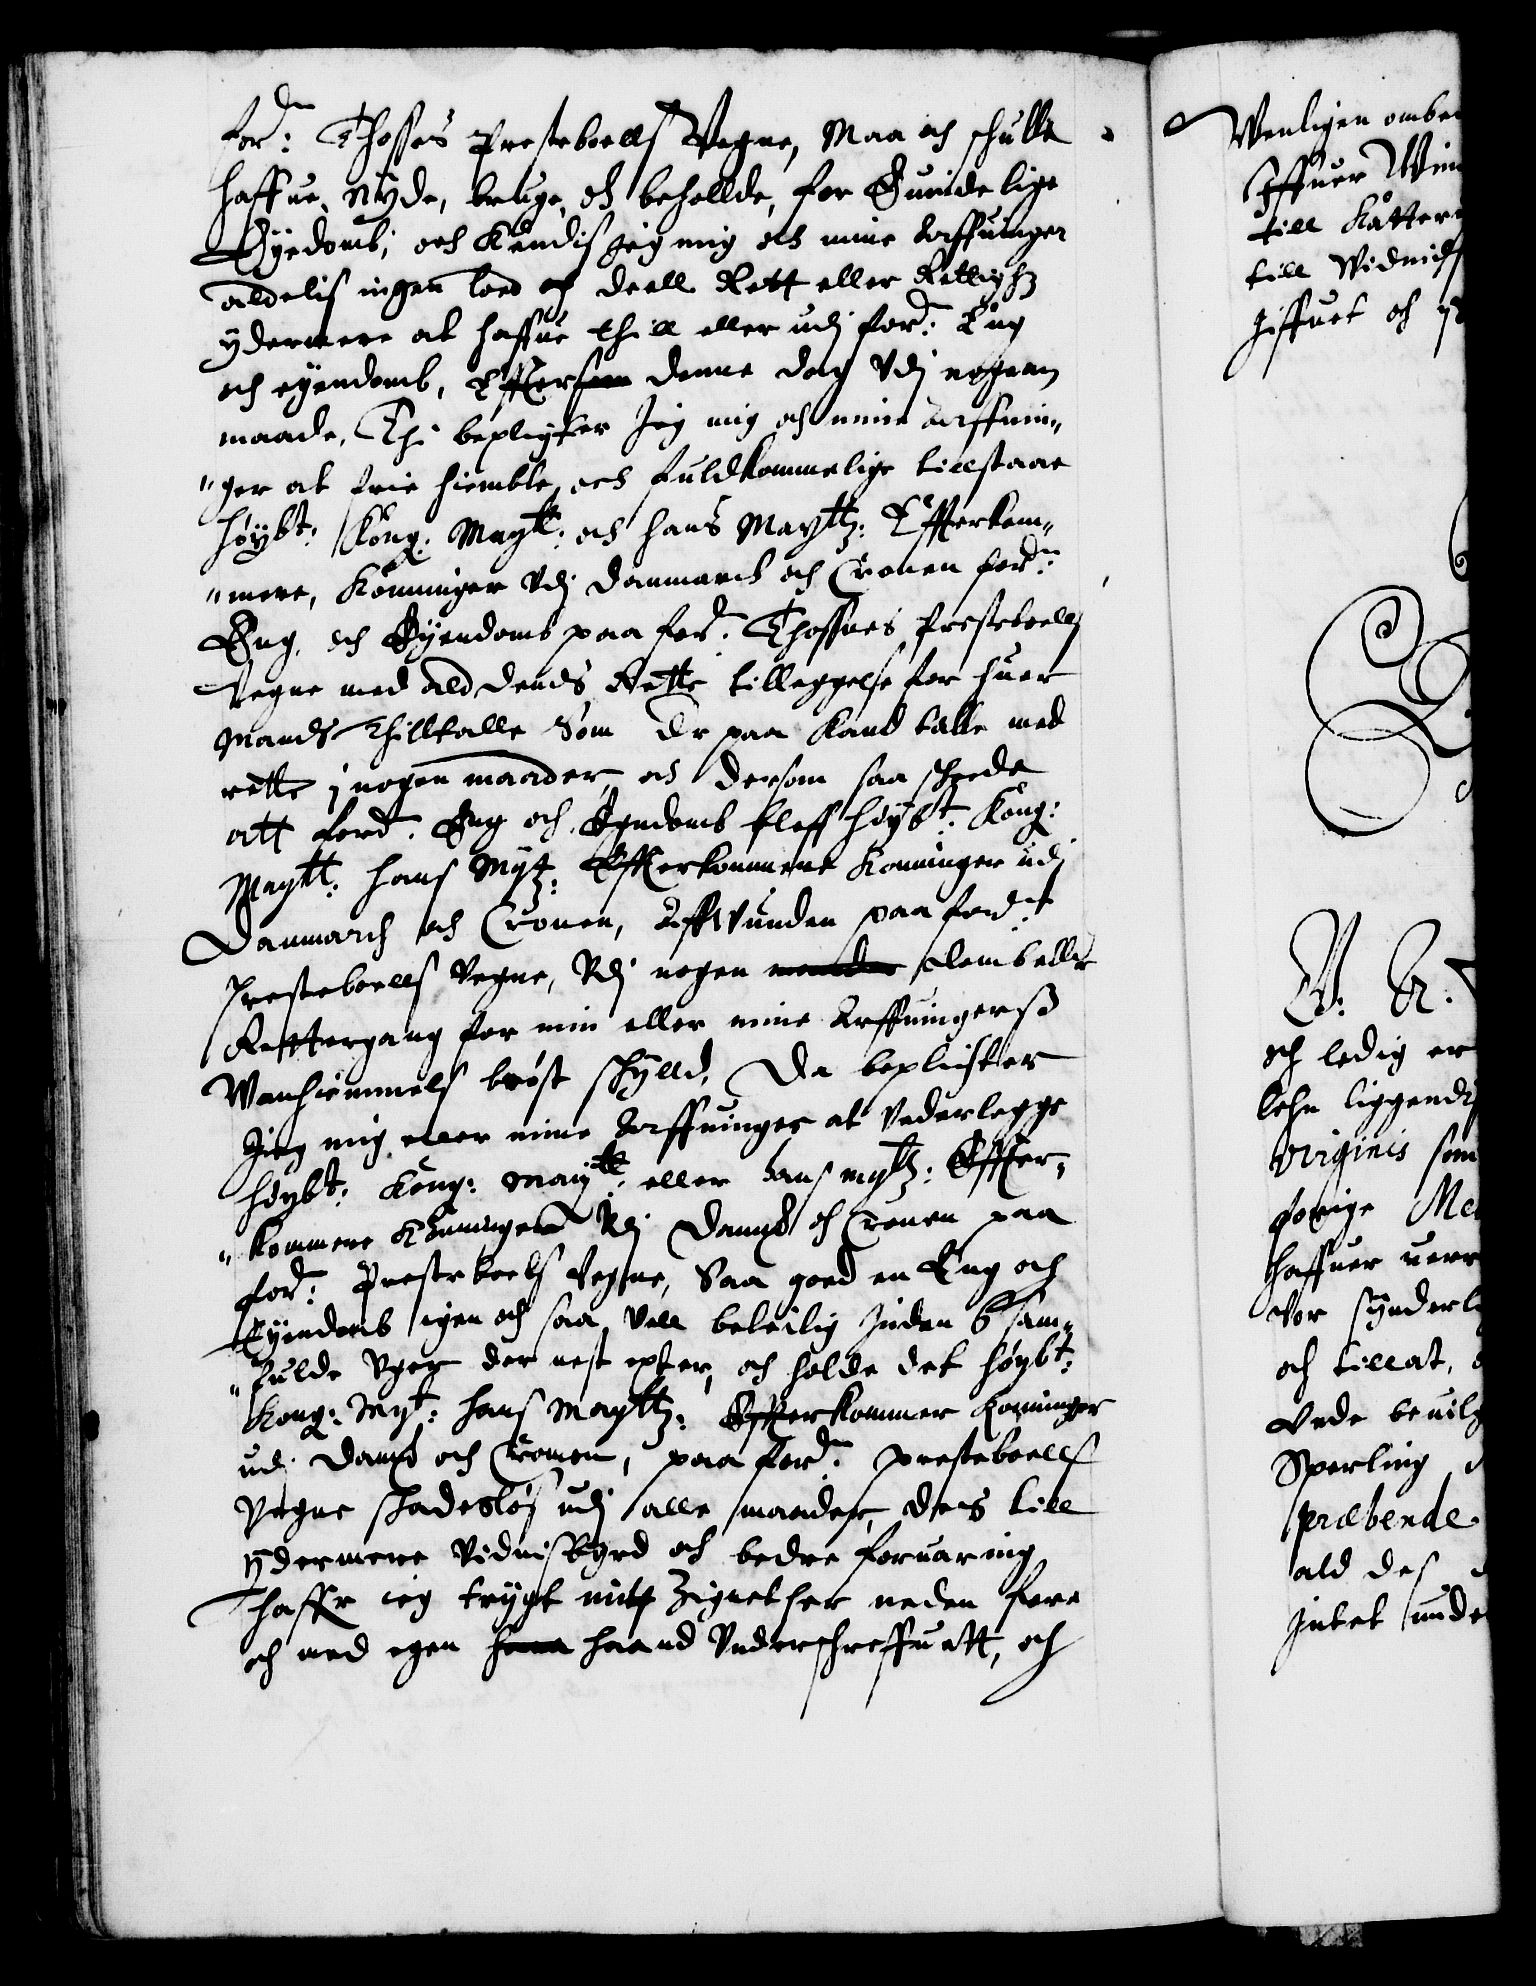 ford: Thosses Presteboells Vegne, Maa och schulle
haffue, nyde, bruge, och behollde, for Euindelige
Eyedomb, och Kendis Jeg mig och mine Arffuinger
aldelis ingen loed och deell Rett eller Rettighz
ydermere at haffue thill eller udj ford: Eng
och eyendomb, Effter denne dag Vdj nogenn
maade, Thi beplicter Jeg mig och mine Arffuin„
„ger at frie hiemble, och fuldkommelige tillstaae
høybt: Kong: Maytt: och hans Maytz: Effterkom„
„mere, Konninger Vdj Danmarch och Cronen ford:
Eng, och Eyendomb paa ford: Thosses Presteboells
Vegne med ald dends Rette tilleggelse for huer
Mands Thilltalle Som der paa Kand talle med
rette j nogen maader, och dersom saa scheede
att ford: Eng och Eyendomb bleff høybt: Kong:
Maytt: hans Mytz: Effterkommere Konninger udj
Danmarch och Cronen, Aff Vunden paa ford:
Presteboells Vegne, Vdj nogen domb eller
Rettergang for min eller mine Arffuingers
Wanhiemmels brøst schylld, Da beplichter
Jeg mig eller mine Arffuinger at Vederlegge
høybt: Kong: Maytt: eller hans mytz: Effter„
„kommere Konninger Vdj Danmarck och Cronen paa
ford: Prestebools Vegne, Saa goed en Eng och
Eyendomb igen och saa Vell beleilig Inden 6 sam„
„fulde Vger der nest epter, och holde det høybt:
Kong: Myt: hans Maytz: Effterkommer Konninger
udj Danmarck och Cronen, paa ford: presteboells
Vegne skadesløs udj alle maader, Des till
ydermere Vidnisbyrd och bedre foruaring
Haffr ieg trygt mitt Zignet her neden fore
och med egen haand Vnderschreffuett, och
Venligen ombe
Iffuer Win
till
till Vidnis
giffuet och
och ledig er
lehn liggend
Virginis som
forige Me
haffuer
Vor synderl
och tillat,
Vnde beuilg
Sperling
præbende
ald des
Intet unde